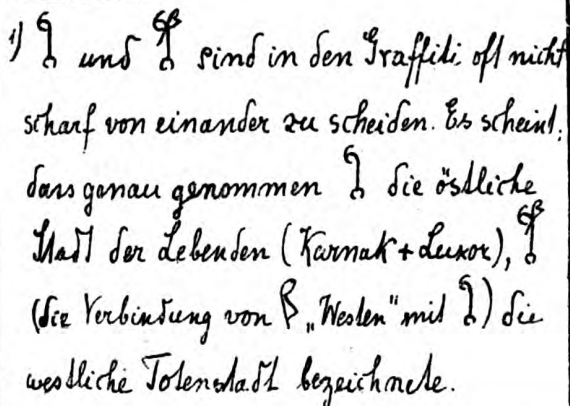 1) 𓌀 und 𓋆 sind in den Graffiti oft nicht
scharf von einander zu scheiden. Es scheint,
dass genau genommen 𓌀 die östliche
Stadt der Lebenden (Karnak + Luxor),
(die Verbindung von „Westen" mit 𓌀) die
westliche Totenstadt bezeichnete.